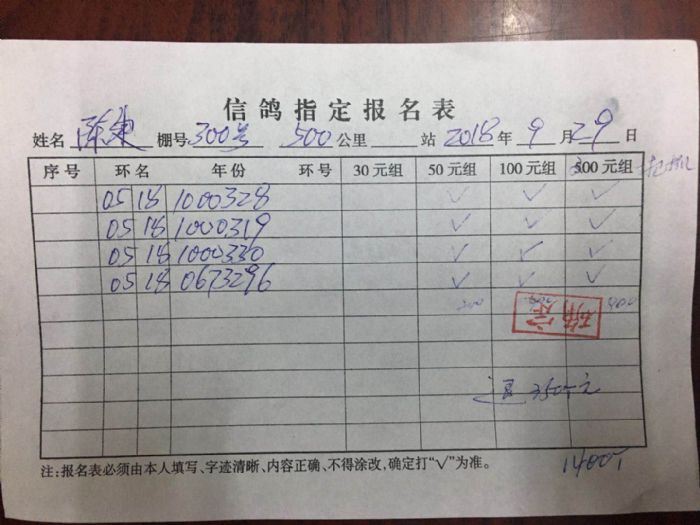 信鸽指定报名表
姓名 陈 棚号 300号 500 公里 站 2018 年 9 月 29 日
序号 环名 年份 环号 30元组 50元组 100元组 300元组
05 18 1000328 ✓ ✓ ✓
05 18 1000319 ✓ ✓ ✓
05 18 1000330 ✓ ✓ ✓
05 18 0673296 ✓ ✓ ✓
200 400
确定
350元
注:报名表必须由本人填写、字迹清晰、内容正确、不得涂改,确定打“✓”为准。
1400